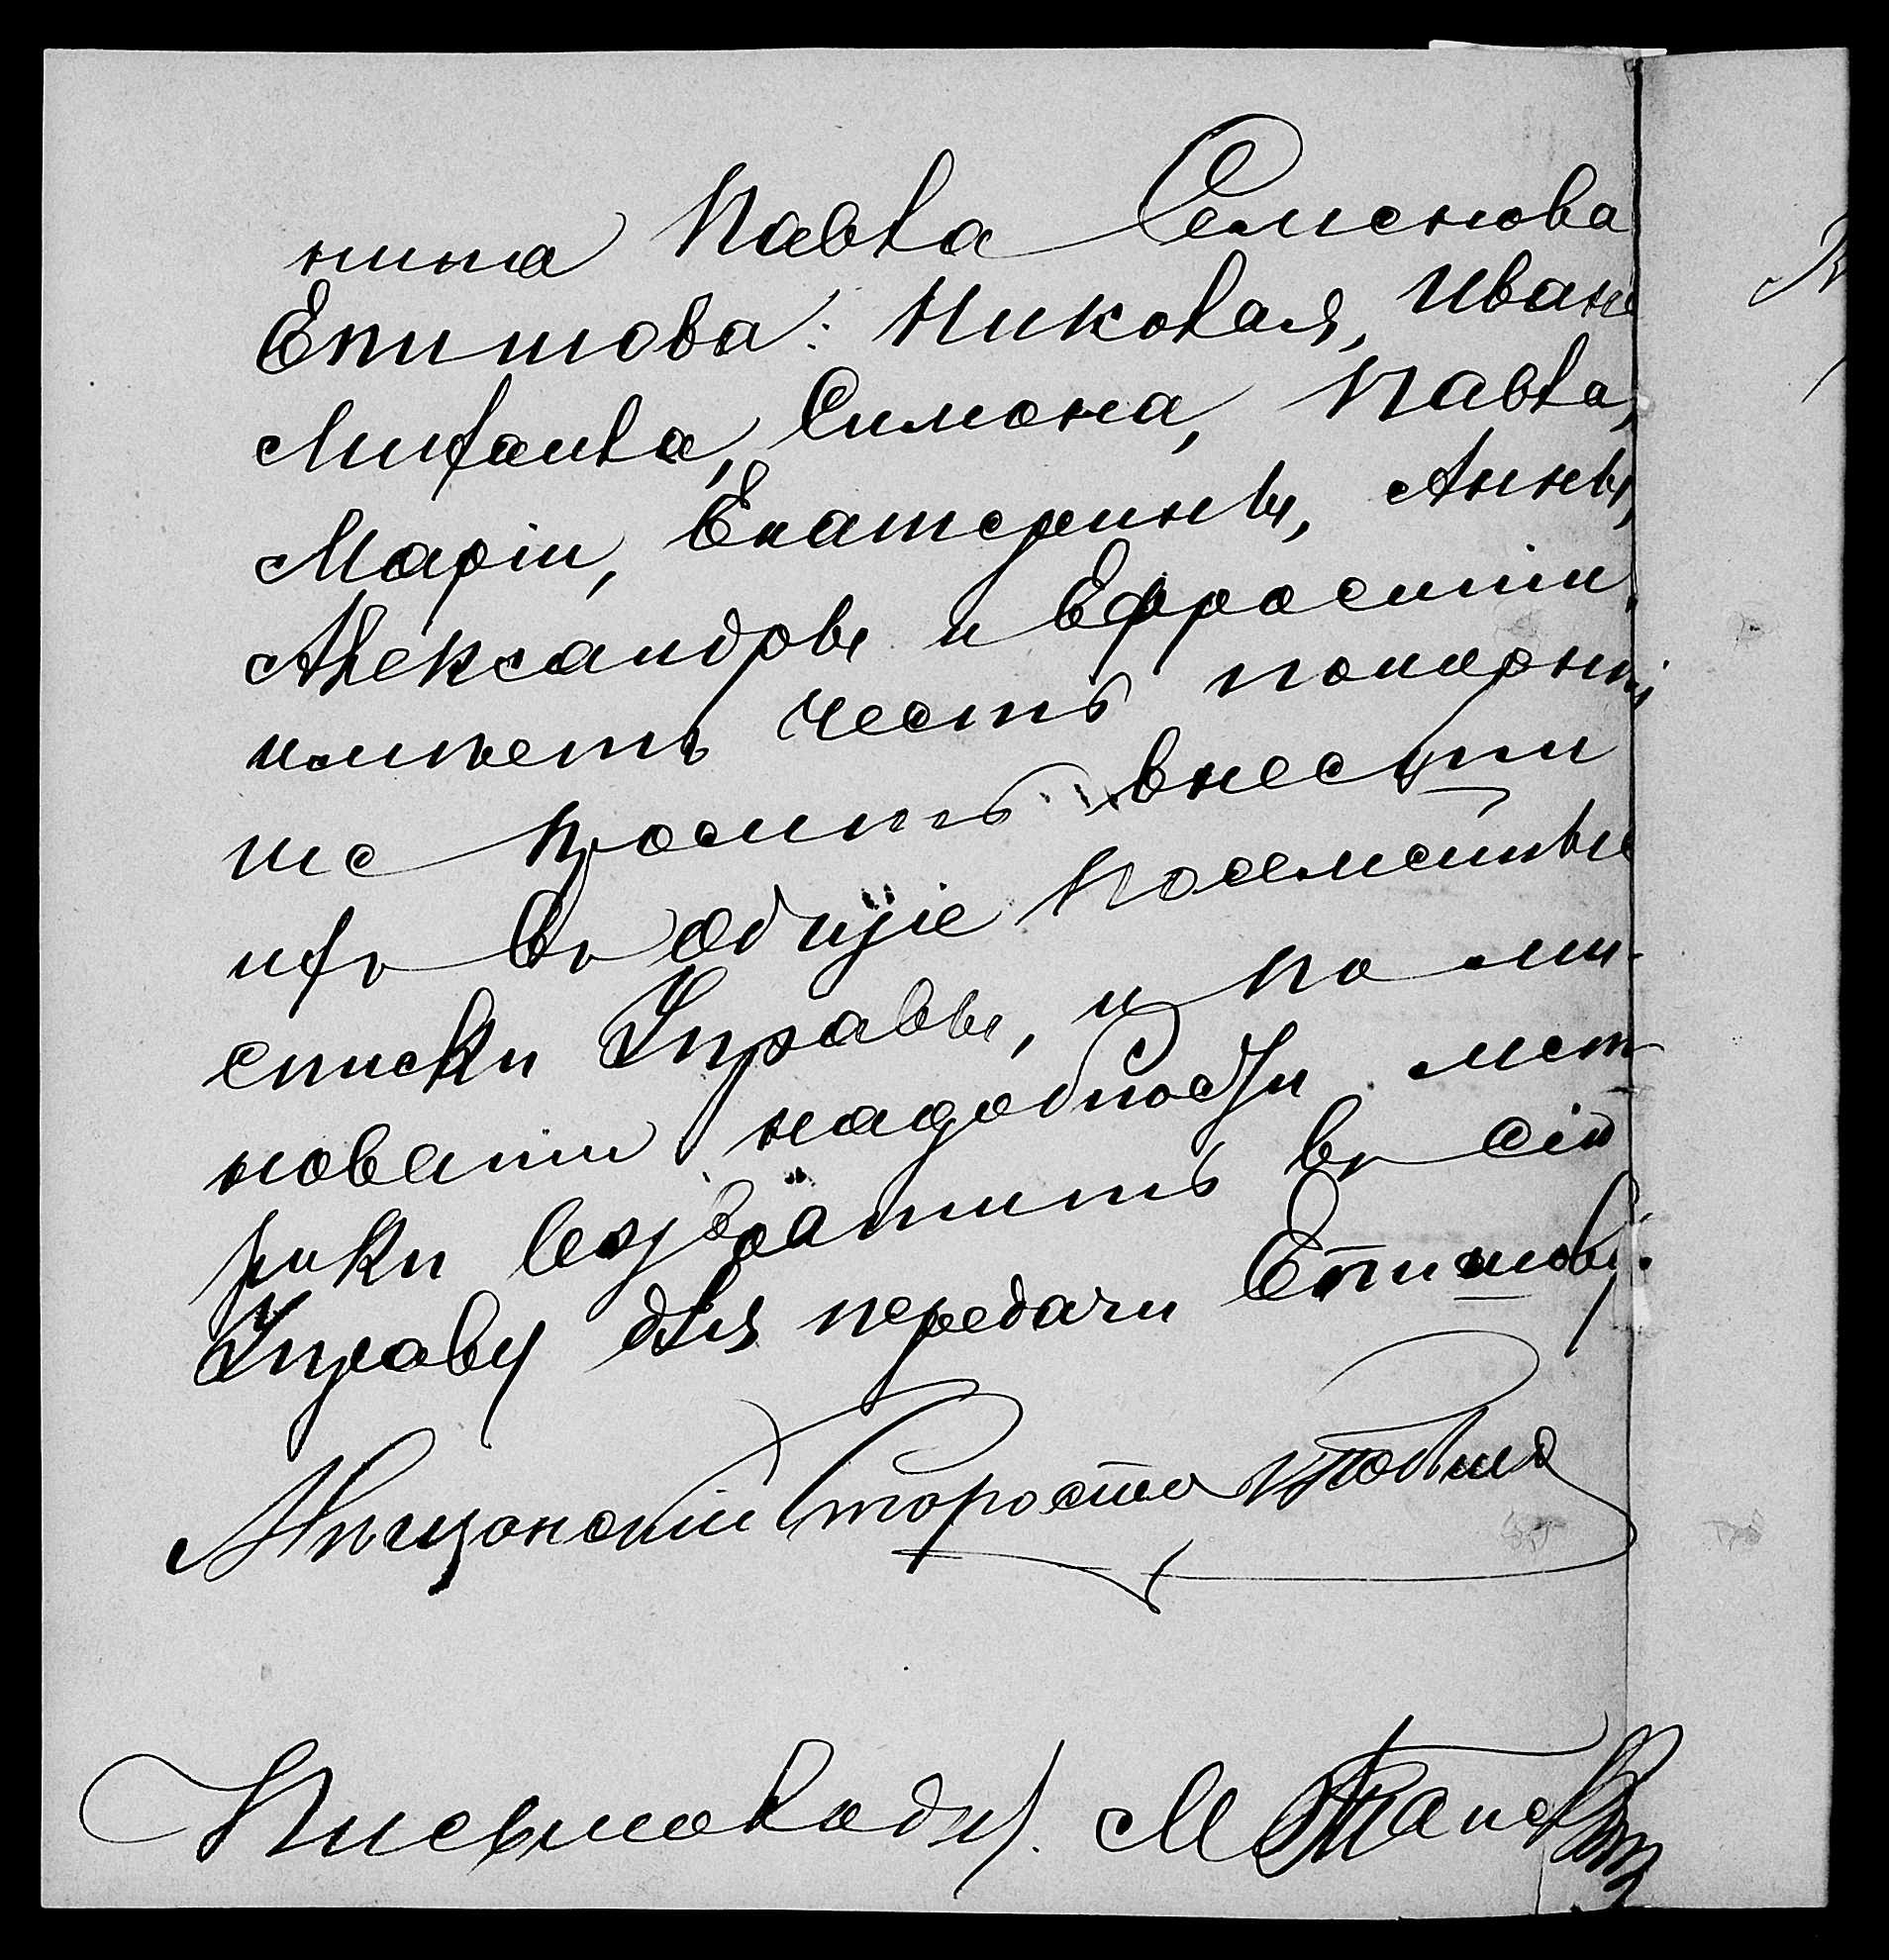 нина Павла Семенова
Епишова: Николая, Ивана
Михаила, Симона, Павла,
Маріи, Екатерины, Анны,
Александры и Ефросиніи,
имѣетъ честь покорнѣй
ше просить внести
ихъ въ общіе посемейные
списки Управы, и по ми-
новании надобности мет
рики возвратить въ сію
Управу для передачи Епишову.
Мѣщанскій Староста
Письмоводит. М